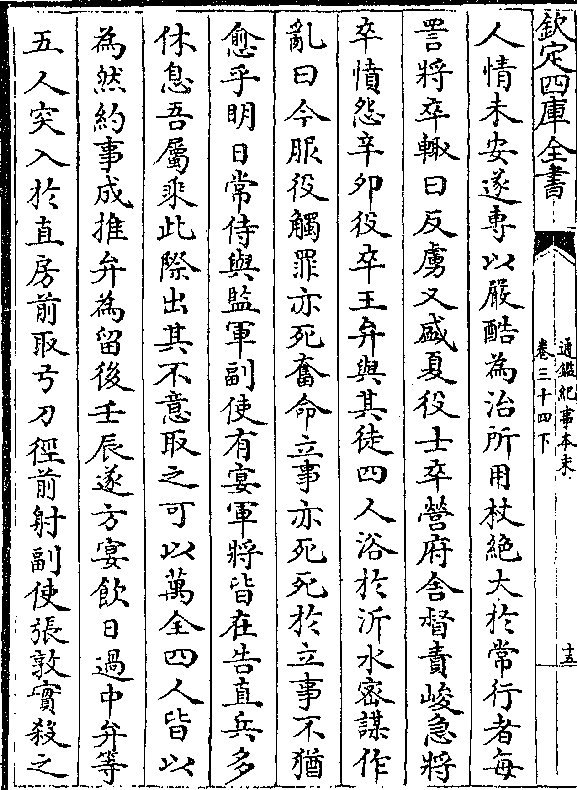 欽定四庫全書
通鑑紀事本末
卷三十四下
十五
人情未安遂專以嚴酷為治所用杖絕大於常行者每
詈將卒輙曰反虜又盛夏役士卒營府舍督責峻急將
卒憤怨辛夘役卒王弁與其徒四人浴於沂水密謀作
亂曰今服役觸罪亦死奮命立事亦死死於立事不猶
愈乎明日常侍與監軍副使有宴軍將皆在告直兵多
休息吾屬乘此際出其不意取之可以萬全四人皆以
為然約事成推弁為留後壬辰遂方宴飲日過中弁等
五人突入於直房前取弓刀徑前射副使張敦實殺之